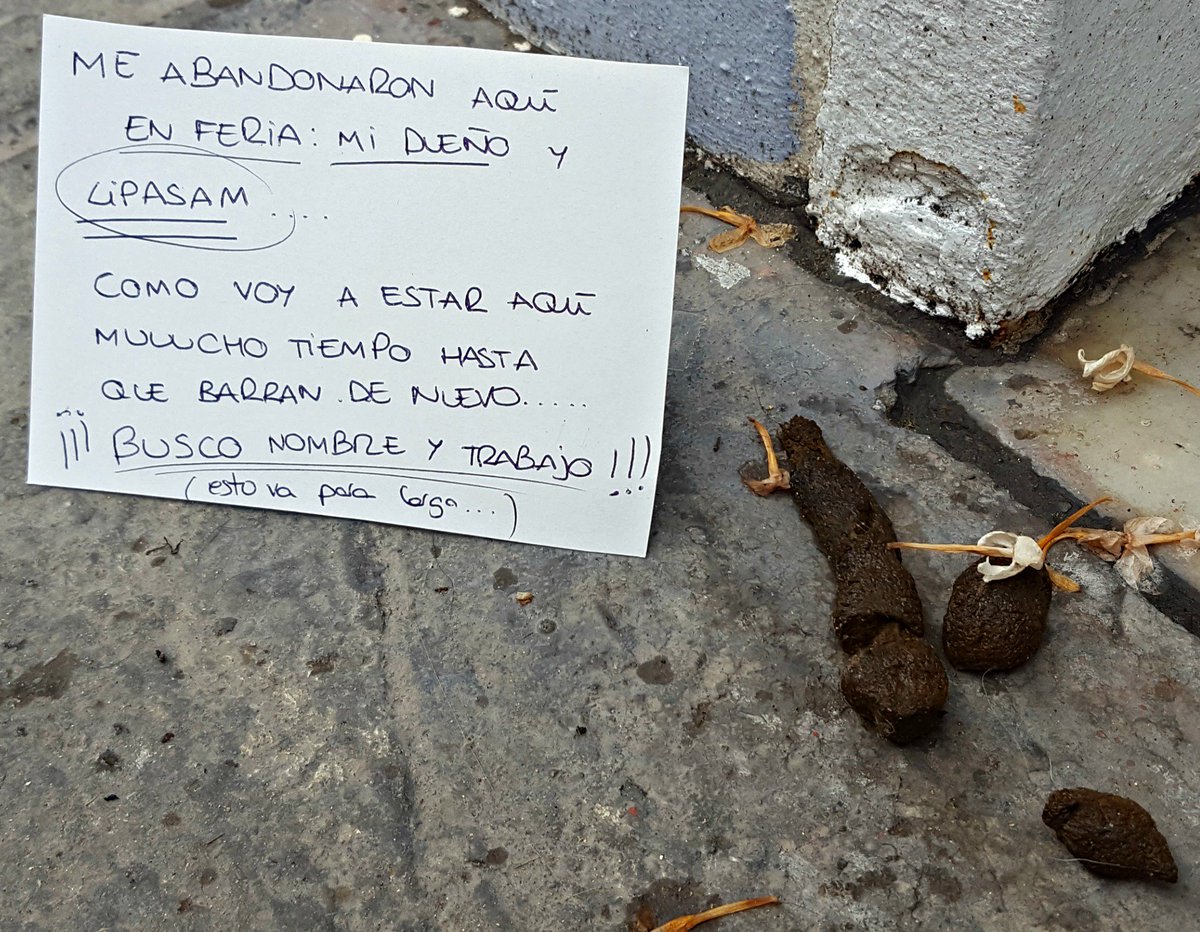 ME ABANDONARON AQUÍ
EN FERIA: MI DUEÑO Y
LIPASAM ....
COMO VOY A ESTAR AQUÍ
MUUUCHO TIEMPO HASTA
QUE BARRAN DE NUEVO.....
¡¡¡ BUSCO NOMBRE Y TRABAJO !!!
(esto va para largo...)